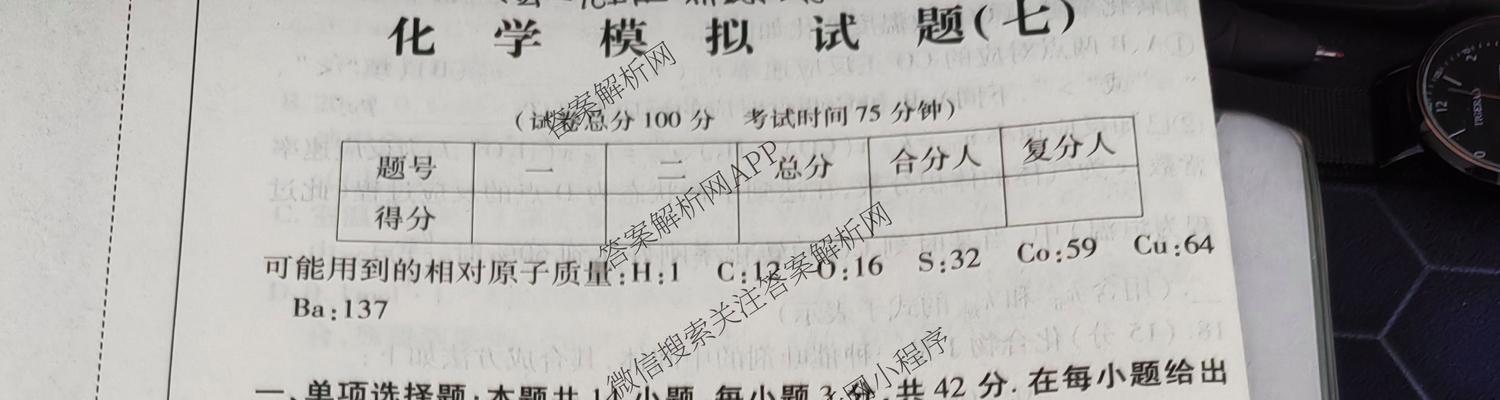 化学模拟试题(七)
(试卷总分100分 考试时间75分钟)
题号 一 二 总分 合分人 复分人
得分
可能用到的相对原子质量:H:1 C:12 O:16 S:32 Co:59 Cu:64
Ba:137
一、单项选择题:本题共14小题,每小题3分,共42分.在每小题给出
答案解析网
答案解析网APP
微信搜索关注答案解析网
小程序
12